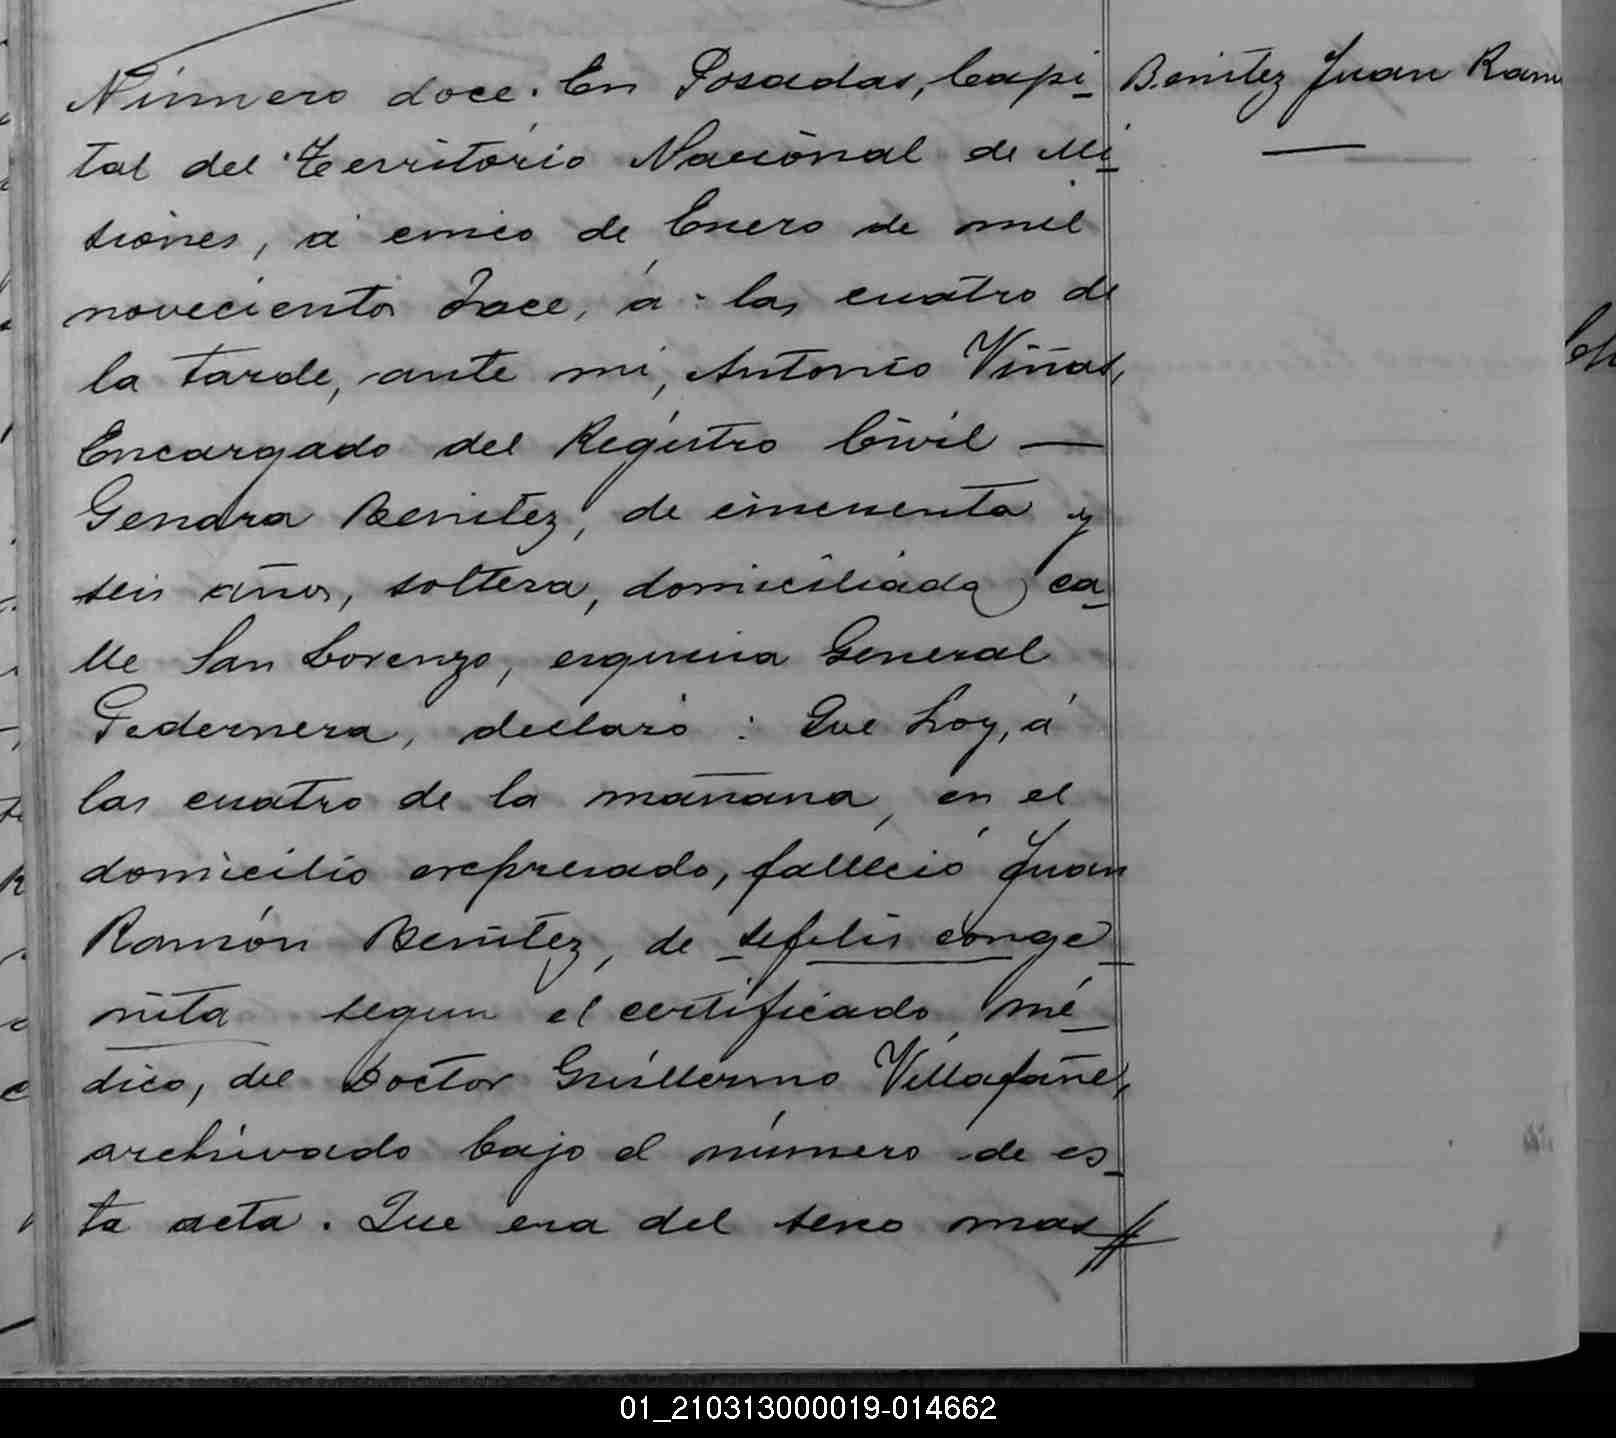 Número doce. En Posadas, Capi- Benitez Juan Ram
tal del Territorio Nacional de Mi-
siones, á cinco de Enero de mil
novecientos doce, á las cuatro de
la tarde, ante mi, Antonio Viñas,
Encargado del Registro Civil —
Genara Benitez, de cincuenta y
seis años, soltera, domiciliada ca-
lle San Lorenzo, esquina General
Pedernera, declaró: Que hoy, á
las cuatro de la mañana, en el
domicilio expresado, falleció Juan
Ramón Benitez, de sefelis conge-
nita segun el certificado mé-
dico, del Doctor Guillermo Villafañe,
archivado bajo el número de es-
ta acta. Que era del sexo mas//
01_210313000019-014662